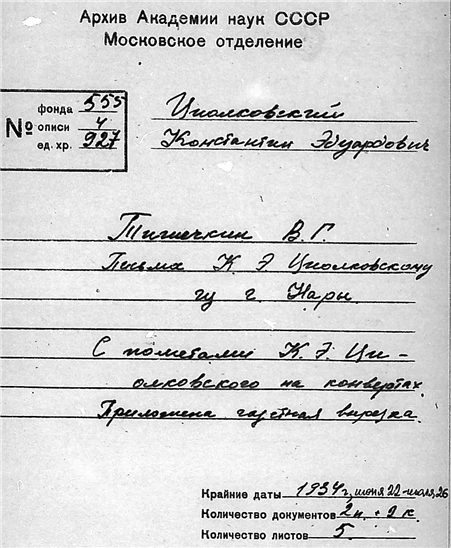 Архив Академии наук СССР
Московское отделение
№ фонда 555
описи 4
ед. хр. 927
Циолковский
Константин Эдуардович
В. Г.
Письма К. Э Циолковскому
г. Нары.
С пометами К. Э. Ци-
олковского на конвертах.
Приложена газетная вырезка.
Крайние даты 1934 г, июня 22-июля, 26
Количество документов 2 п. + 2 к.
Количество листов 5